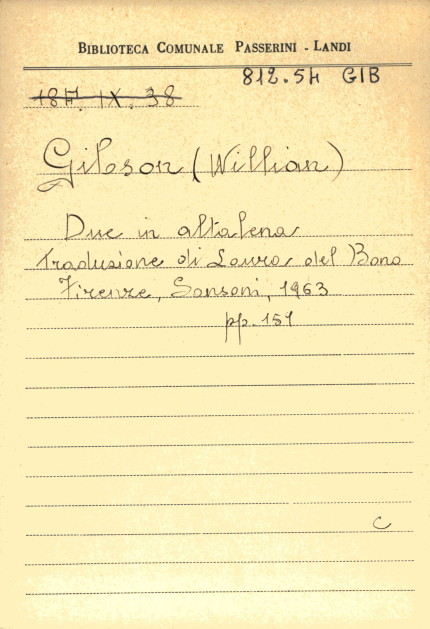 BIBLIOTECA COMUNALE PASSERINI - LANDI
812.54 GIB
18F. IX. 38
Gibson (Willian)
Due in altalena
Traduzione di Laura del Bono
Firenze, Sansoni, 1963
pp. 151
C